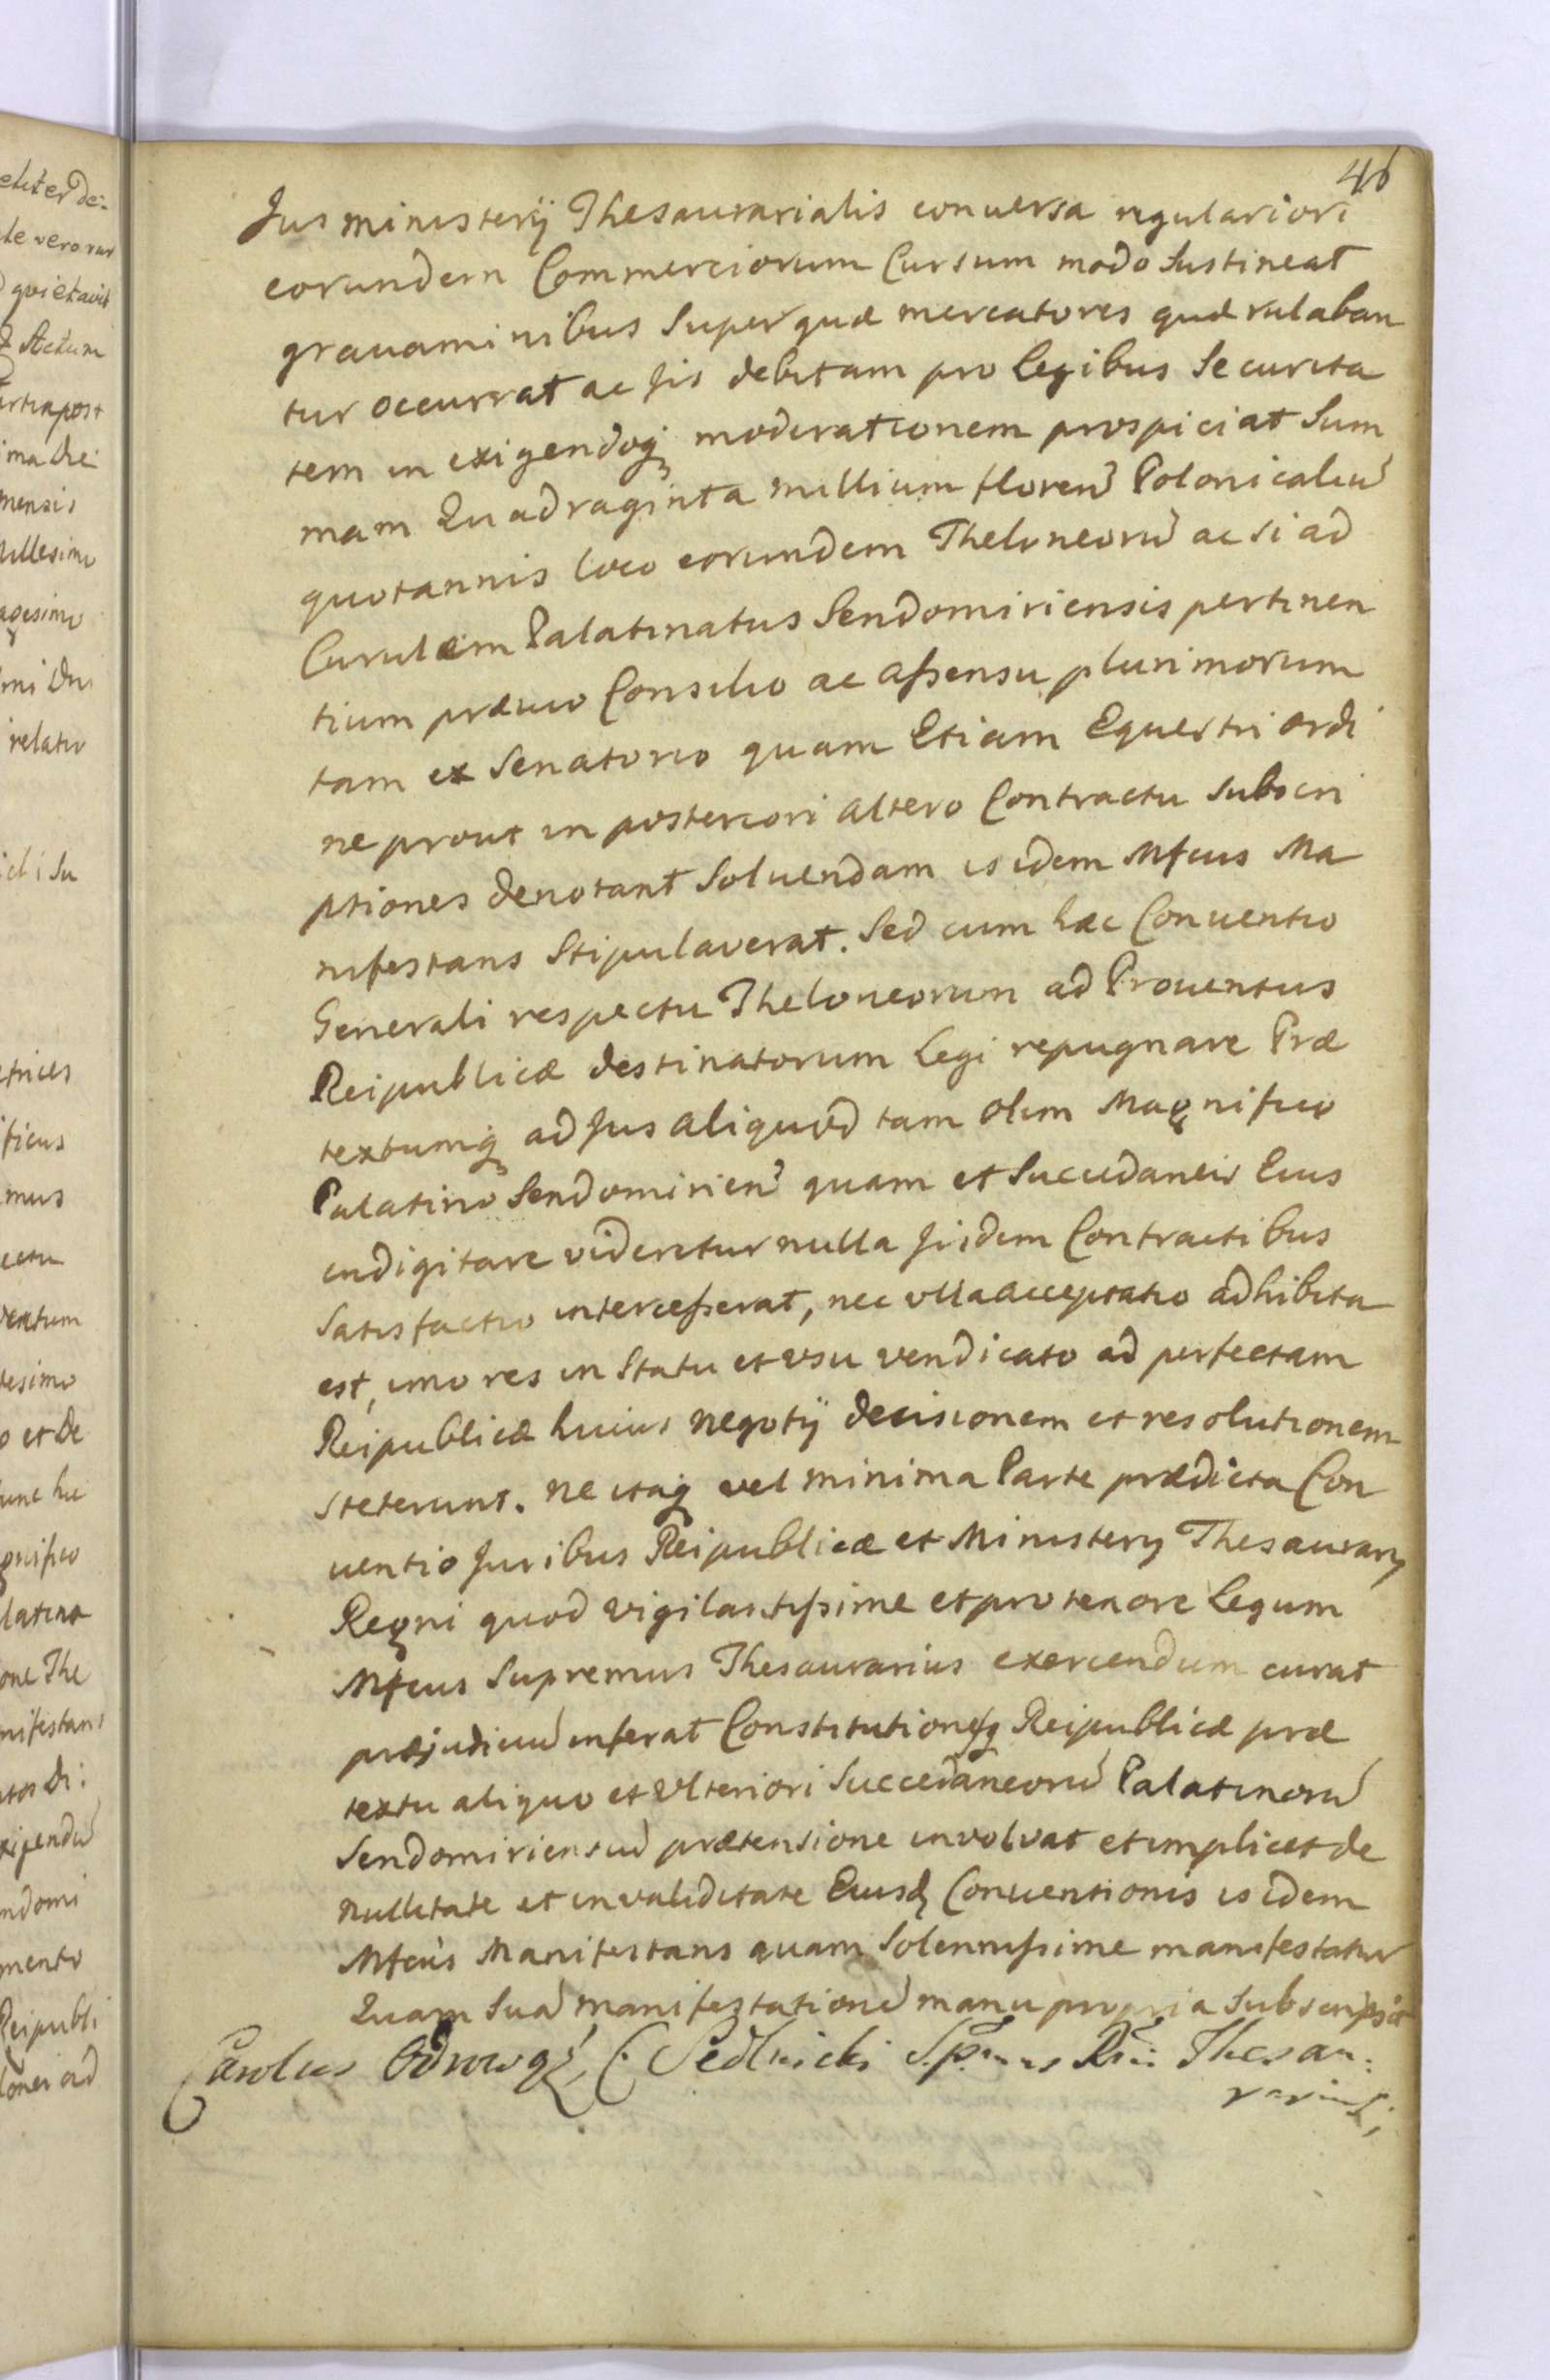 46
Jus ministerij Thesaurarialis conuersa regulariori
eorundem Commerciorum Cursum modo Sustineat
grauaminibus Super quæ mercatores quærulaban
tur occurrat ac Jis debitam pro legibus Securita
tem in exigendoq; moderationem prospiciat Sum
mam Quadraginta millium floren Polonicaliu
quotannis loco eorundem Theloneoru ac si ad
Curulem Palatinatus Sendomiriensis pertinen
tium prævio Consilio ac assensu plurimorum
tam ex Senatorio quam Etiam Equestri ordi
ne prout in posteriori altero Contractu Subscri
ptiones denotant Soluendam is idem Mfcus Ma
nifestans Stipulaverat. Sed cum hæc Conuentio
Generali respectu Theloneorum ad Prouentus
Reipublicæ destinatorum Legi repugnare Præ
textumq; ad Jus aliquod tam olim Magnifico
Palatino Sendomirien quam et Succedaneis Eius
indigitare videretur nulla Jisdem Contractibus
Satisfactio intercesserat, nec vlla acceptatio adhibita
est, imo res in Statu et vsu vendicato ad perfectam
Reipublicæ huius negotij decisionem et resolutionem
steterunt. ne itaq; vel minima Parte prædicta Con
uentio Juribus Reipublicæ et Ministerij Thesaurarij
Regni quod vigilantissime et pro tenore Legum
Mfcus Supremus Thesaurarius exercendum curat
præjudiciu inferat Constitutionesq; Reipublicæ præ
textu aliquo et Vlteriori Succedaneoru Palatinoru
Sendomiriensiu prætensione involvat et implicet de
nullitate et invaliditate Eiusd Conuentionis is idem
Mfcus Manifestans quam Solennissime manifestatur
Quam Sua manifestatione manu propria Subscripsit
Carolus Odrowąż C Sedlnicki Spmus Rni Thesau:
rarius;